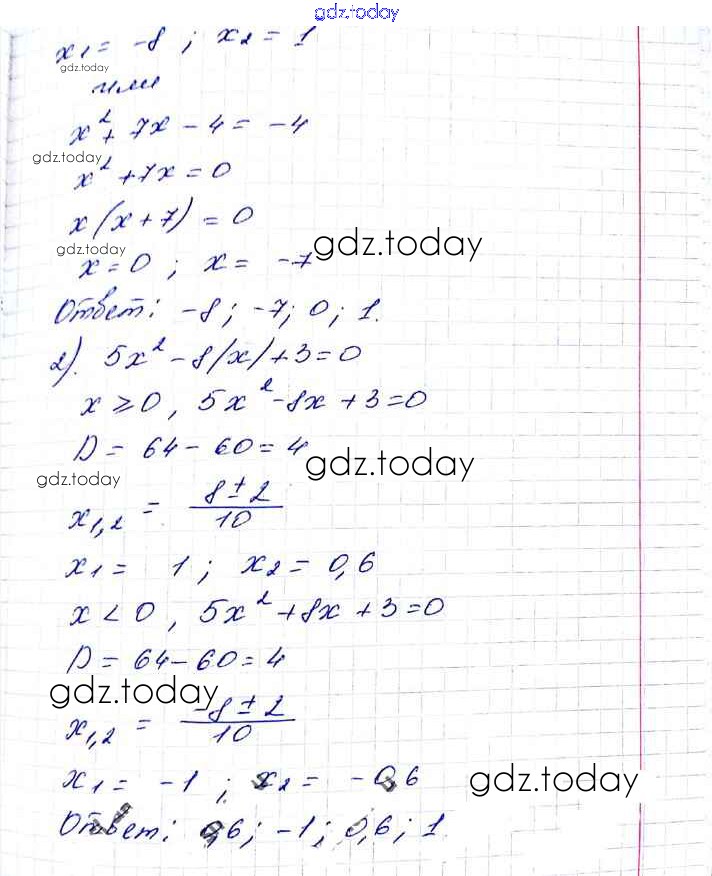 gdz.today
x₁ = -8 ; x₂ = 1
gdz.today
или
x² + 7x - 4 = -4
gdz.today
x² + 7x = 0
x(x+7) = 0
gdz.today
gdz.today
x = 0 ; x = -7
Ответ: -8; -7; 0; 1.
2). 5x² - 8|x| + 3 = 0
x ≥ 0, 5x² - 8x + 3 = 0
D = 64 - 60 = 4
gdz.today
gdz.today
x₁,₂ = (8 ± 2)/10
x₁ = 1; x₂ = 0,6
x < 0, 5x² + 8x + 3 = 0
D = 64 - 60 = 4
gdz.today
x₁,₂ = (-8 ± 2)/10
x₁ = -1 ; x₂ = -0,6
gdz.today
Ответ: 0,6; -1; 0,6; 1.